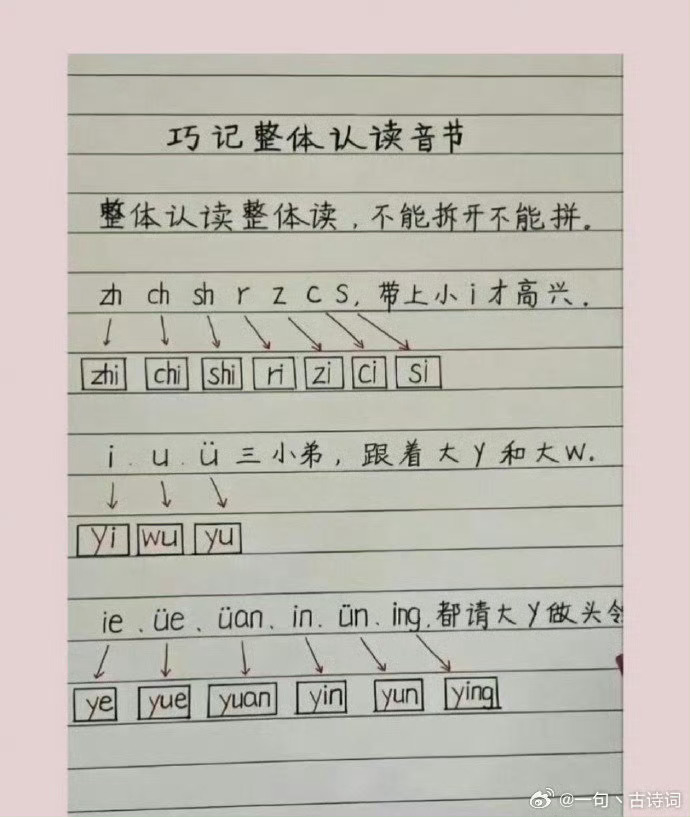 巧记整体认读音节
整体认读整体读，不能拆开不能拼。
zh ch sh r z c s，带上小i才高兴．
zhi chi shi ri zi ci si
i．u．ü三小弟，跟着大y和大w．
yi wu yu
ie、üe、üan、in、ün、ing，都请大y做头领
ye yue yuan yin yun ying
@一句丶古诗词